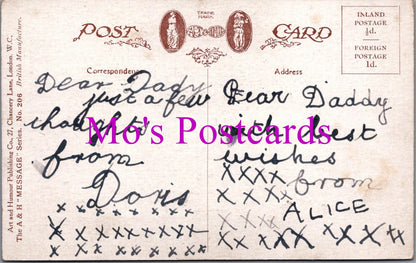 TRADE
MARK
POST CARD
INLAND
POSTAGE
½d.
FOREIGN
POSTAGE
1d.
Correspondence
Address
Art and Humour Publishing Co., 27, Chancery Lane, London, W.C.
The A & H "MESSAGE" Series. No. 206 British Manufacture.
Dear Dady
just a few
thoughts
from
Doris
x x x x x x x x
x x x x x x x x
x x x x x x x
Dear Daddy
with best
wishes
xxxx from
x x x x
x x x x ALICE
x x x x x x x x x
Mo's Postcards